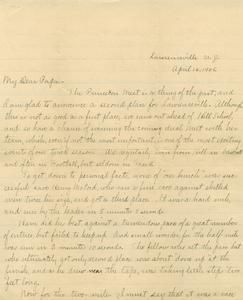 Lawrenceville N.J.
April 16, 1905
My Dear Papa:-
The Princeton Meet is a thing of the past, and
I am glad to announce a second place for Lawrenceville. Although
this is not as good as a first place, we came out ahead of Hill School,
and so have a chance of winning the coming dual meet with her
team, which, would not the most important, is one of the most exciting
events of our track season. We regularly from Hill in baseball
and often in Football, but seldom in track.
To get down to personal facts, none of our bunch was suc-
cessful save Henry, who ran a fine race against skilled
men twice his age, and got a third place. It was a hard mile,
and won by the leader in 5 minutes seconds.
I have did his best against a tremendous pace of a great number
of entries but failed to keep it up. And small wonder for the half mile
was won in 2 minutes 10 seconds. The fellow who set the pace but
who ultimately got only second place was about down up at the
finish, and as he near the tape, was taking little steps two
feet long.
Now for the two-mile. I must say that it was a race